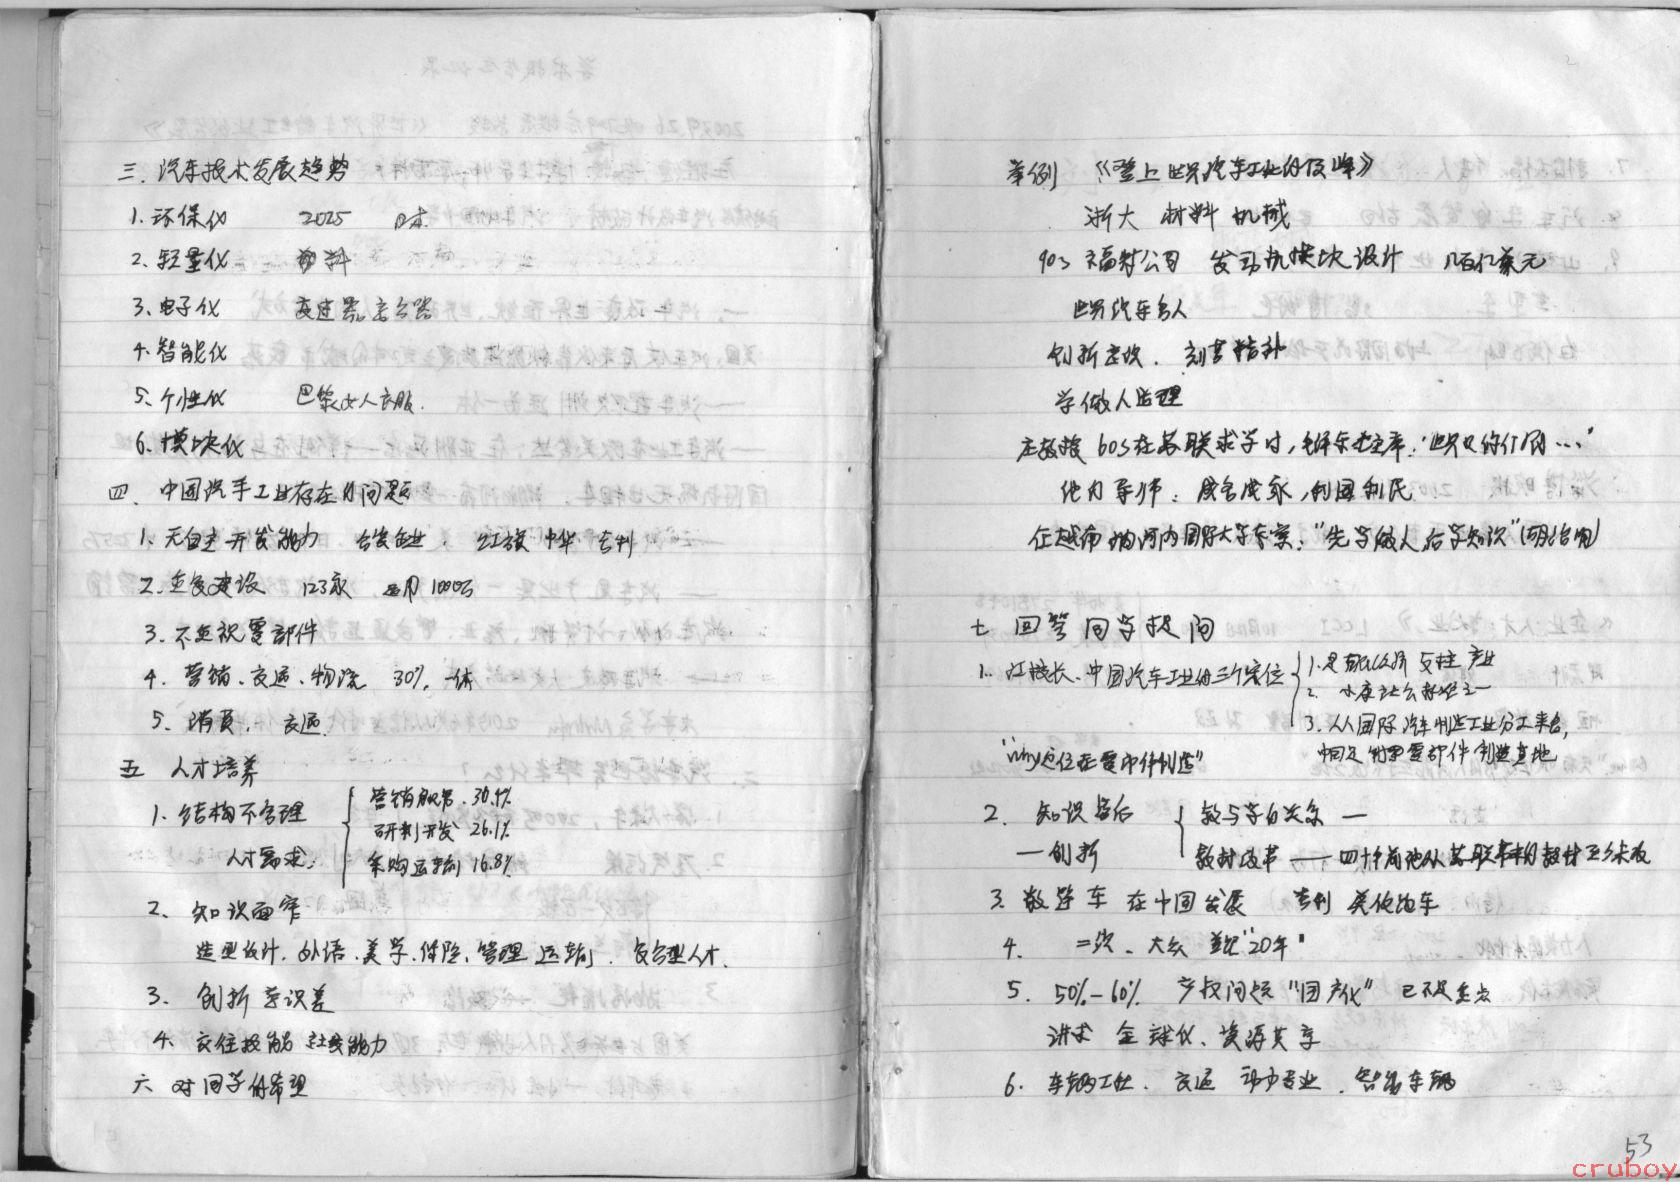 三、汽车技术发展趋势
1. 环保化 2025 日本
2. 轻量化 材料
3. 电子化 变速器、离合器
4. 智能化
5. 个性化 巴黎女人衣服.
6. 模块化
四、中国汽车工业存在的问题
1. 无自主开发能力 合资企业、红旗 中华 专利
2. 重复建设 123家 通用 1000万
3. 不重视零部件
4. 营销、交通、物流 30% 一体
5. 消费、交通
五 人才培养
1. 结构不合理
人才需求:
营销服务 . 30.9%
研制开发 26.1%
采购运输 16.8%
2. 知识面窄
造型设计、外语、美学、保险、管理 运输、复合型人才.
3. 创新意识差
4. 交往技能 社交能力
六 对同学的希望
举例 《登上世界汽车工业的顶峰》
浙大 材料 机械
90s 福特公司 发动机模块设计 几百亿美元
世界汽车名人
创新 刻苦精神
学做人道理
庄教授 60s在苏联求学时,毛泽东主席:“世界是你们的…”
他的导师:成名成家,利国利民
在越南 河内国际大学 :“先学做人后学知识”(胡治明)
七 回答同学提问
1. 江校长、中国汽车工业的三个定位
1. 是 支柱产业
2. 小康社会标志之一
3. 从国际汽车制造工业分工来看,
中国是 零部件制造基地
“why定位在零部件制造”
2. 知识落后
教与学的关系 —
— 创新
教材改革 —— 四十年前他从苏联带来的教材至今未改
3. 教练车 在中国发展 专利 美使的车
4. 二次、大众 “20年”
5. 50%-60% 产权问题 “国产化” 已不是重点
讲求 全球化、资源共享
6. 车辆工程、交通 动力专业、智能车辆
53
cruboy